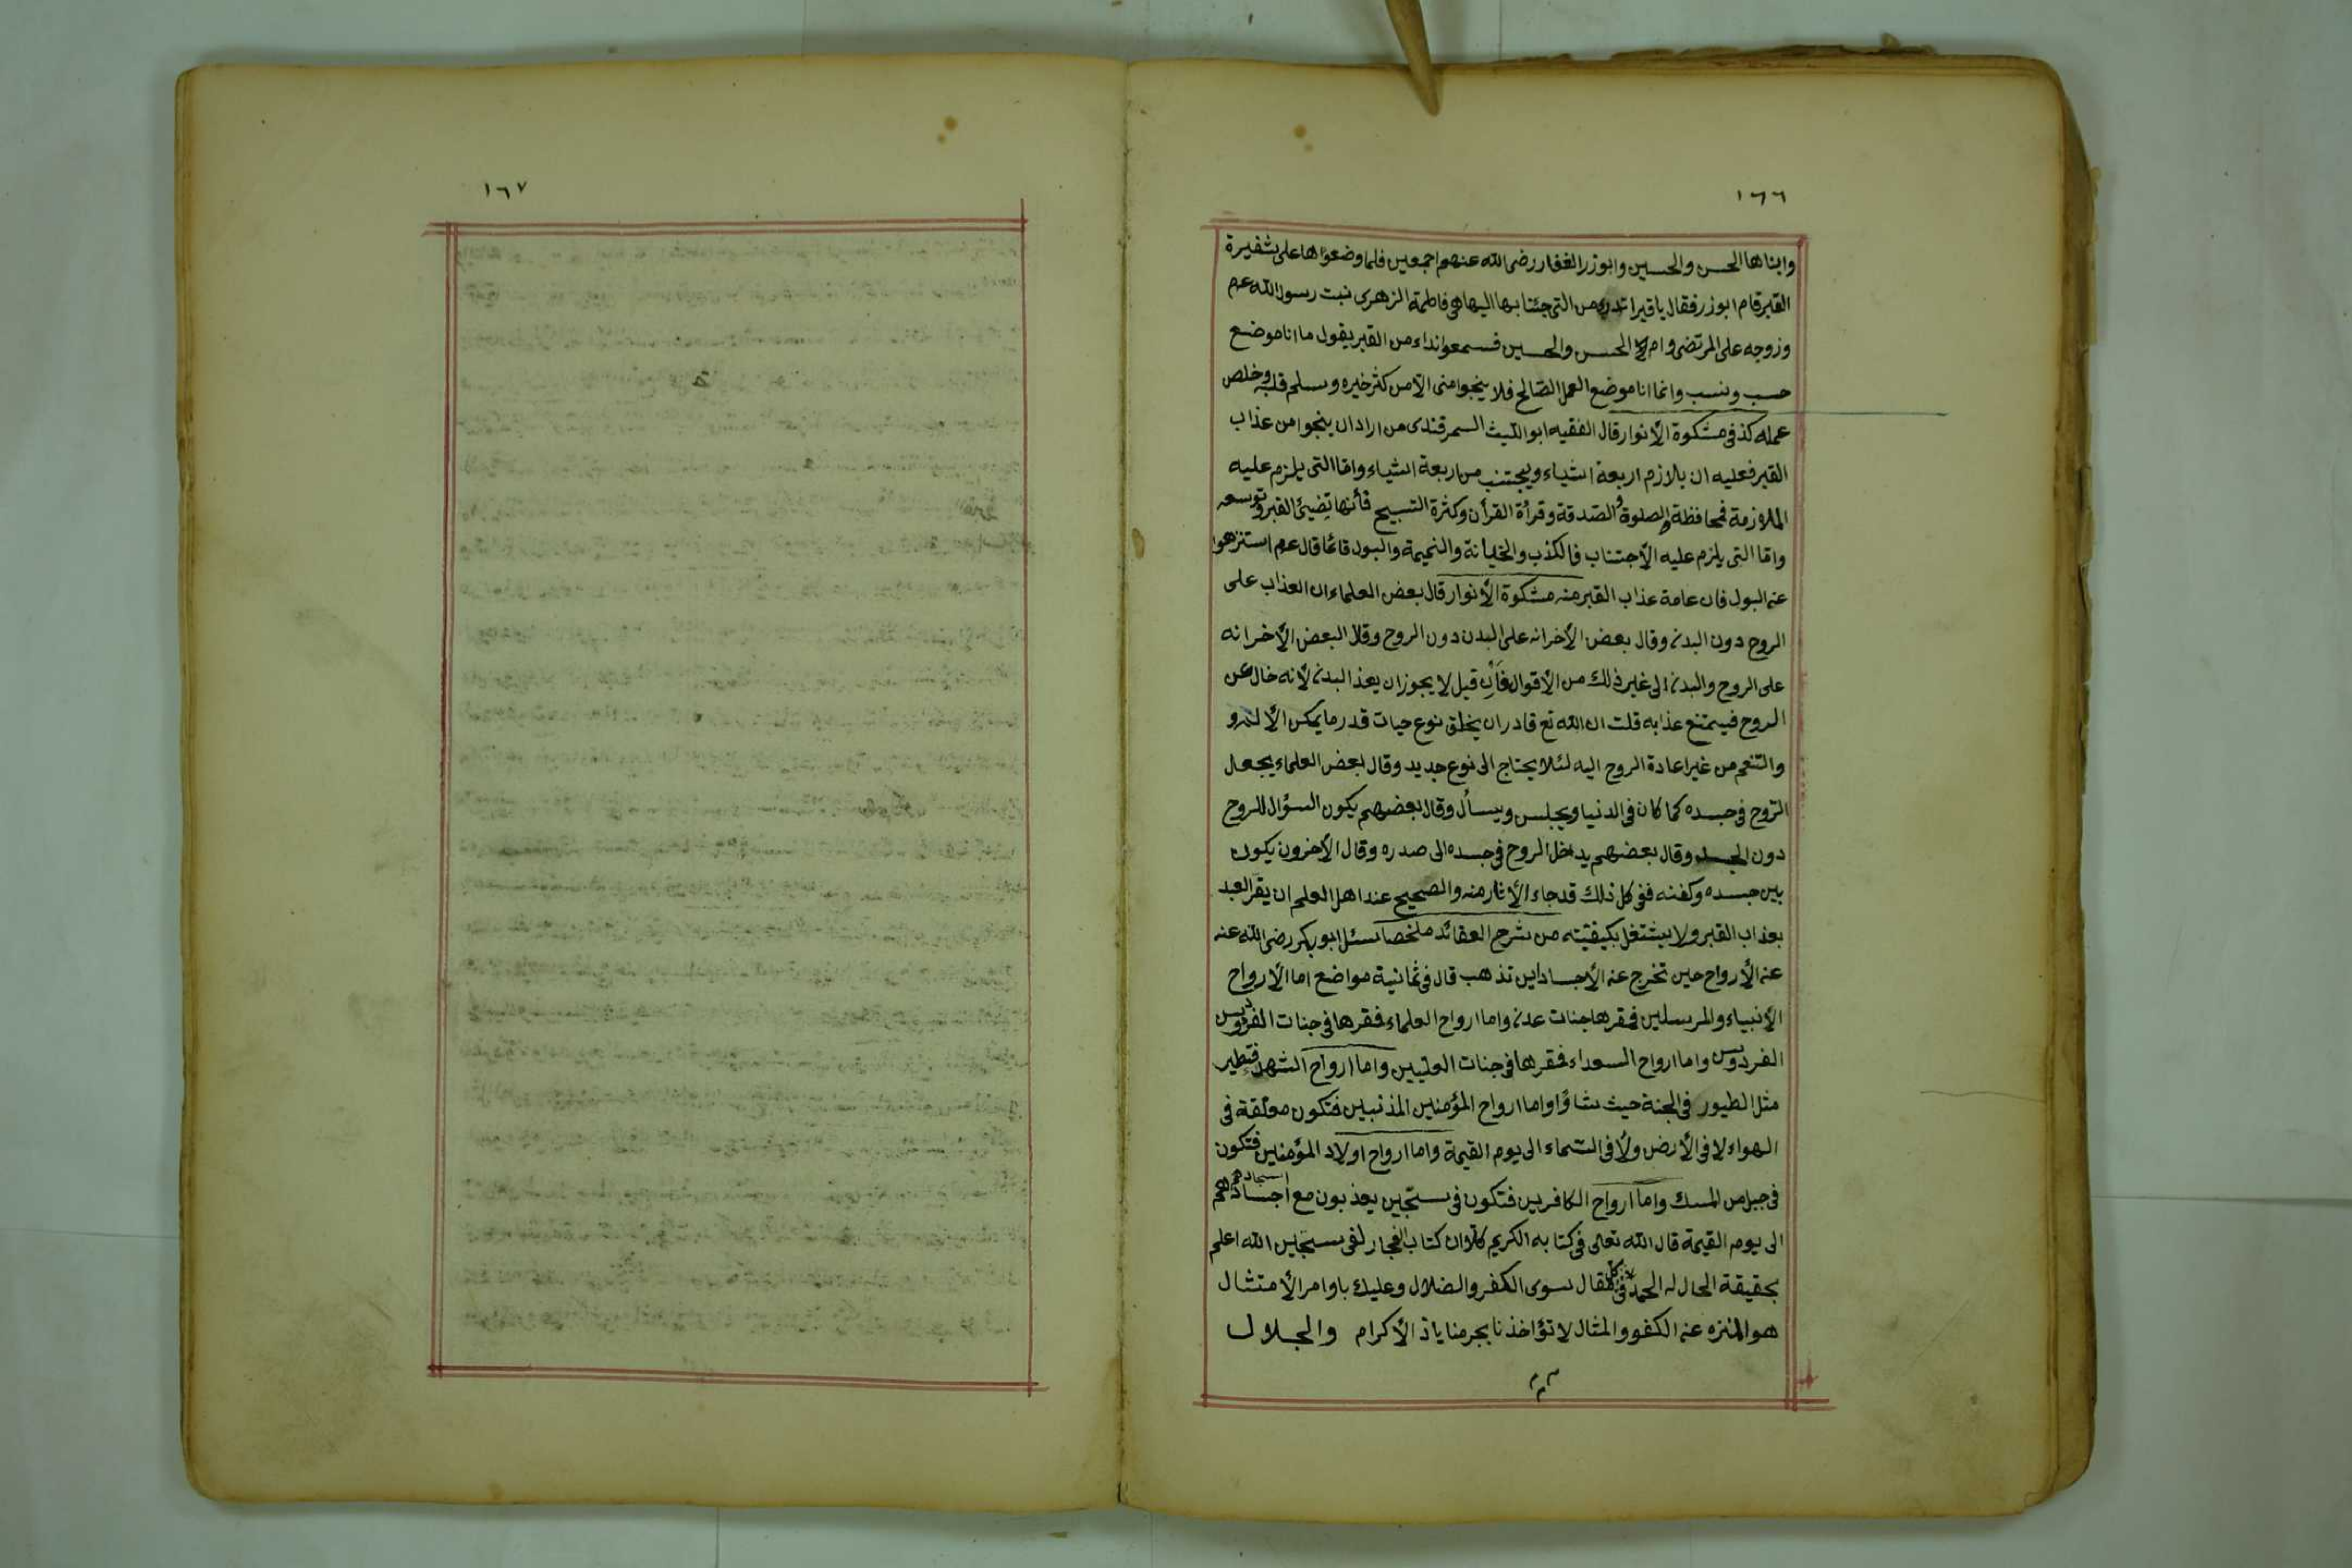 ١٦٦
وابناها الحسن والحسين وابوذر الغفار رضى الله عنهم اجمعين فلما وضعوا ها على شفيرة
القبر قام ابوذر فقال يا قبر اتدرى من التى جئنا بها اليها هى فاطمة الزهرى نبت رسول الله عم
وزوجه على المرتضى وام الحسن والحسين فسمعوا نداء من القبر يقول ما انا موضع
حسب ونسب وانما انا موضع العمل الصّالح فلا ينجوا منى الّا من كثر خيره وسلم قلبه وخلص
عمله كذ فى مشكوة الأنوار قال الفقيه ابو اللّيث السمرقندى من اراد ان ينجوا من عذاب
القبر فعليه ان يلازم اربعة اشياء ويجتنب من اربعة اشياء وامّا التى يلزم عليه
الملازمة فمحافظة الصلوة والصّدقة وقرأة القرأن وكثرة التسبيح فأنها تضيئ القبر وتوسعه
وامّا التى يلزم عليه الأجتناب فالكذب والخيانة والنميمة والبول قائما قال عم استنزهوا
عن البول فان عامة عذاب القبر منه مشكوة الأنوار قال بعض العلماء ان العذاب على
الروح دون البدن وقال بعض الأخر انه على البدن دون الروح وقال البعض الأخر انه
على الروح والبدن الى غير ذلك من الأقوال فأن قيل لا يجوز ان يعذ البدن لأنه خال عن
الروح فيمتنع عذابه قلت ان الله تع قادر ان يخلق نوع حيات قدر ما يمكن الألم و
والتنعم من غير اعادة الروح اليه لئلا يحتاج الى نوع جديد وقال بعض العلماء يجعل
الرّوح فى جسده كما كان فى الدنيا ويجلس ويسأل وقال بعضهم يكون السؤال للروح
دون الجسد وقال بعضهم يداخل الروح فى جسده الى صدره وقال الأخرون يكون
بين جسده وكفنه ففى كل ذلك قد جاء الأثار منه والصحيح عند اهل العلم ان يقر العبد
بعذاب القبر ولا يشتغل بكيفيّته من شرح العقائد ملخصا سئل ابو بكر رضى الله عنه
عن الأرواح حين تخرج عن الأجساد اين تذهب قال فى ثمانية مواضع اما الأرواح
الأنبياء والمرسلين فمقرها جنات عدن واما ارواح العلماء فمقرها فى جنات الفردوس
الفردوس واما ارواح السعداء فمقرها فى جنات العلّيين واما ارواح الشهد فتطير
مثل الطيور فى الجنة حيث شاؤا واما ارواح المؤمنين المذنبين فتكون معلّقة فى
الهواء لا فى الأرض ولا فى السّماء الى يوم القيمة واما ارواح اولاد المؤمنين فتكون
فى جبل من المسك واما ارواح الكافرين فتكون فى سجّين يعذبون مع اجسادهم
الى يوم القيمة قال الله تعالى فى كتابه الكريم كلّا ان كتاب الفجار لفى سجين الله اعلم
بحقيقة الحال له الحمد فى كل مقال سوى الكفر والضلال وعليك باوامر الأمتثال
هو المنزه عن الكفو والمثال لا تؤاخذنا بجرمنا ياذ الأكرام والجلال
١٦٧